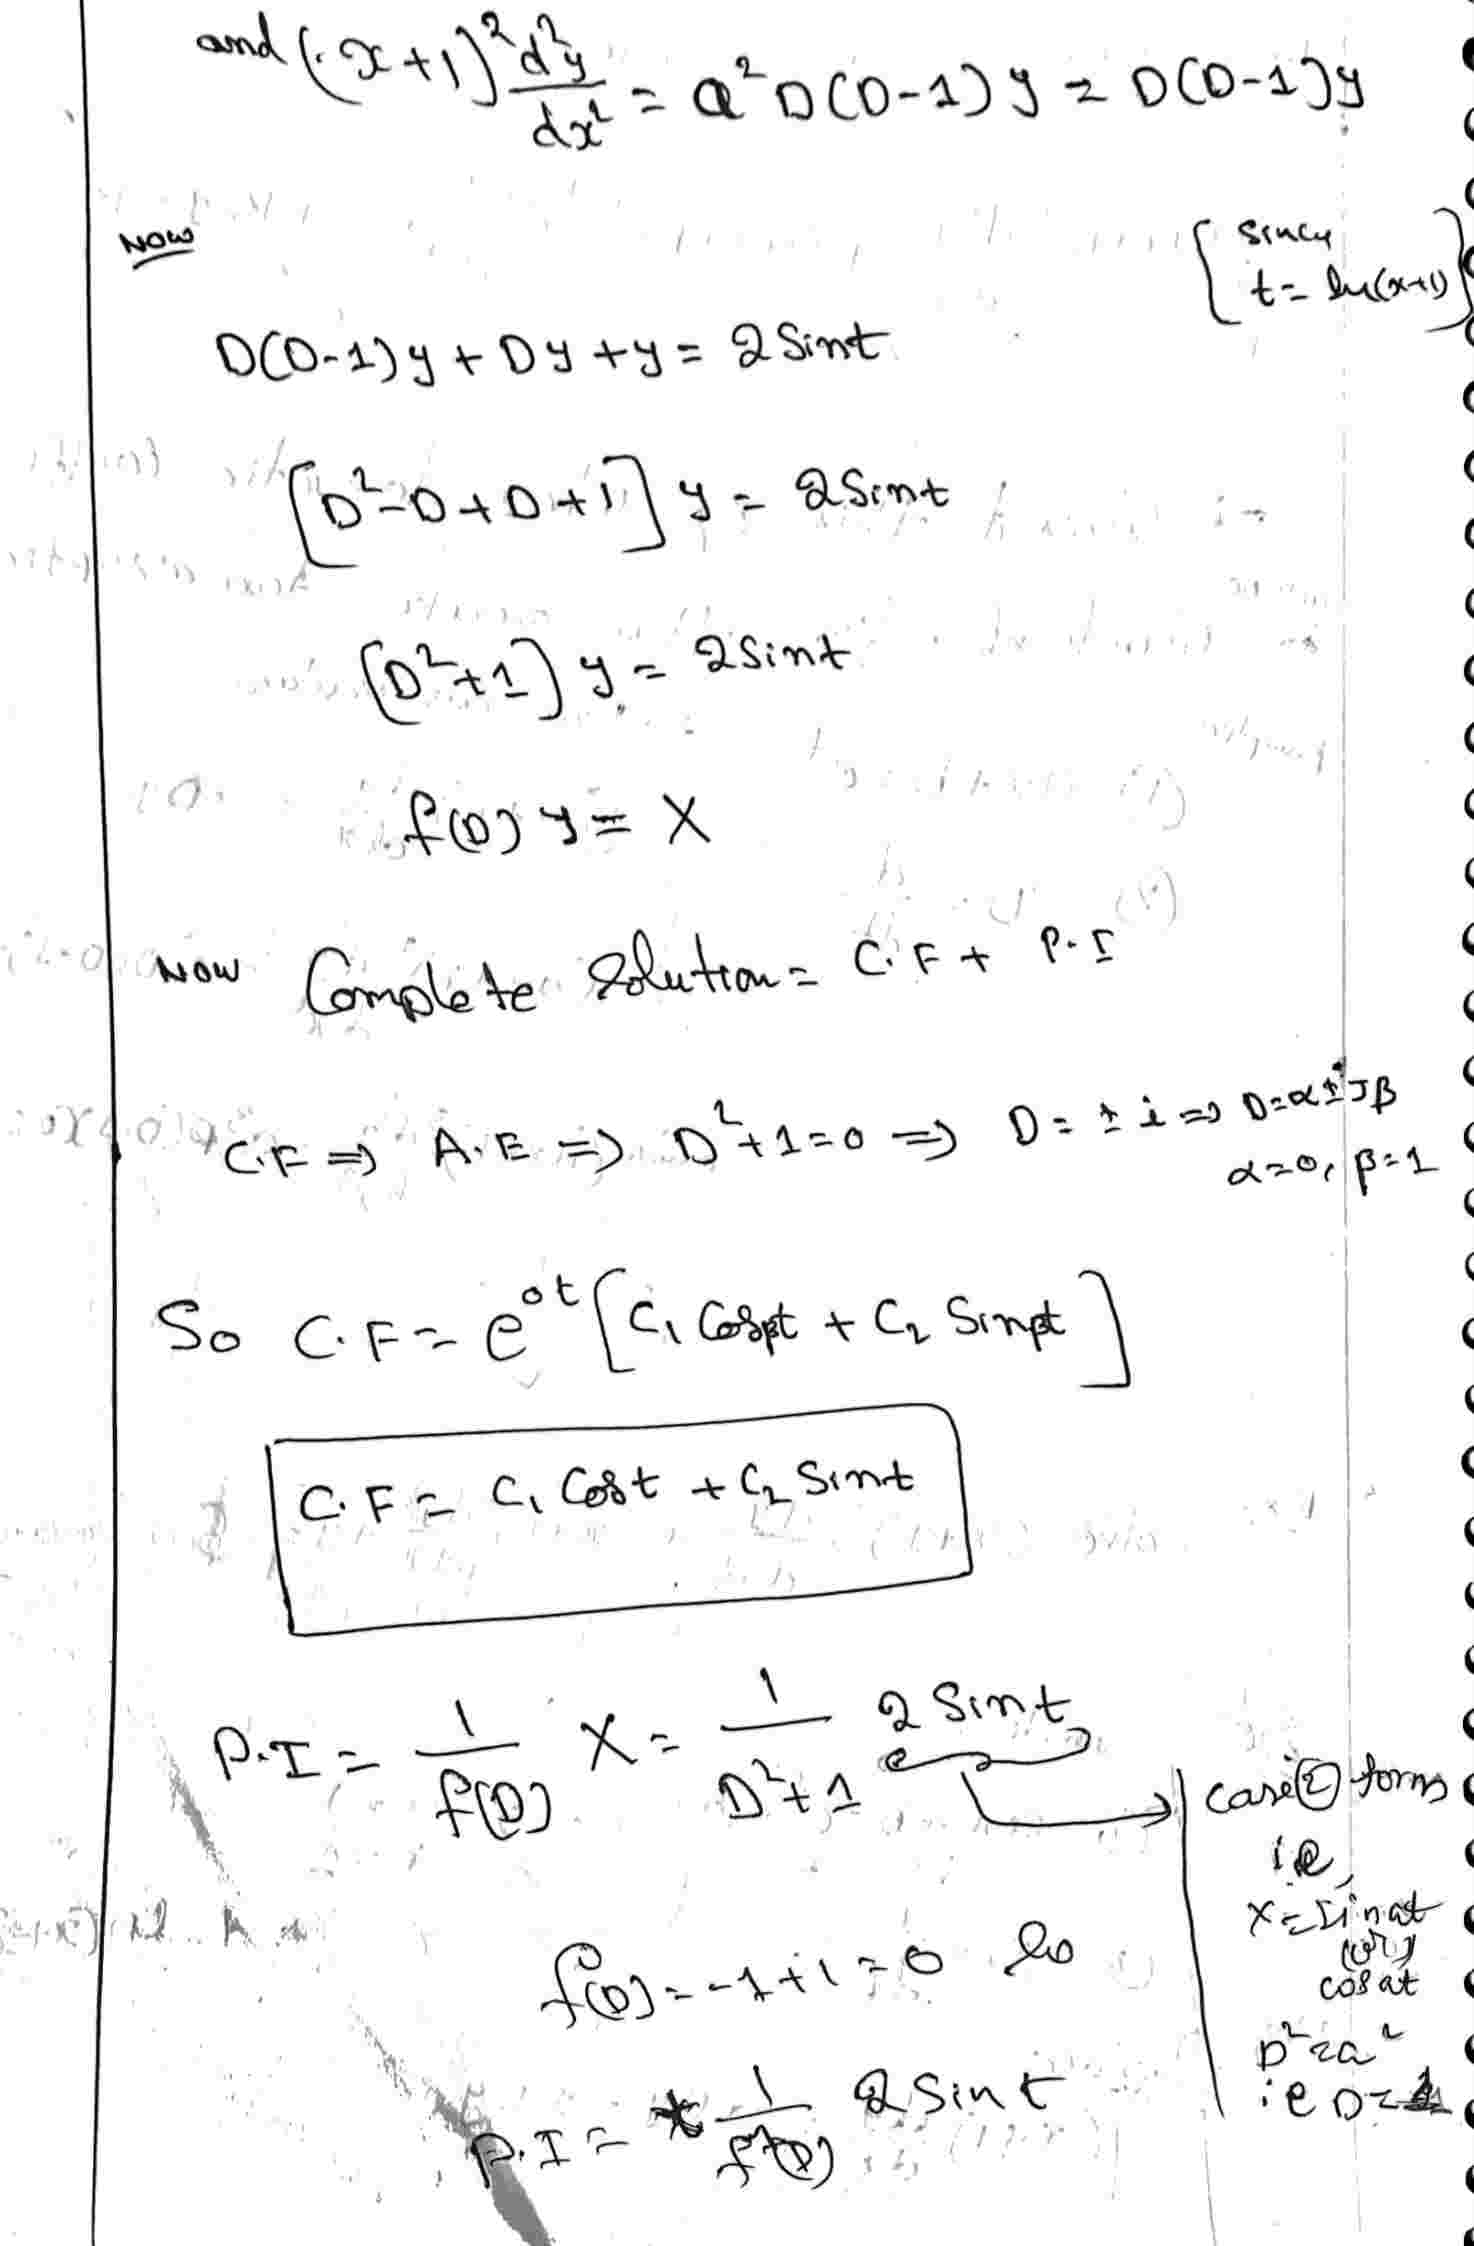 and (x+1)² d²y/dx² = a² D(D-1) y = D(D-1)y
Now
{ since
t = ln(x+1) }
D(D-1)y + Dy + y = 2 Sint
[D²-D+D+1] y = 2Sint
[D²+1] y = 2Sint
f(D) y = X
Now Complete Solution = C.F + P.I
C.F ⇒ A.E ⇒ D²+1=0 ⇒ D = ± i ⇒ D=α±iβ
α=0, β=1
So C.F = e^ot [C₁ Cosβt + C₂ Sinβt]
C.F = C₁ Cost + C₂ Sint
P.I = 1/f(D) X = 1/D²+1 2 Sint
case ② form
i.e
X = Sinat
(or)
cosat
D²=a²
ie D=
f(D) = -1+1=0 so
P.I = t 1/f'(D) 2 Sint